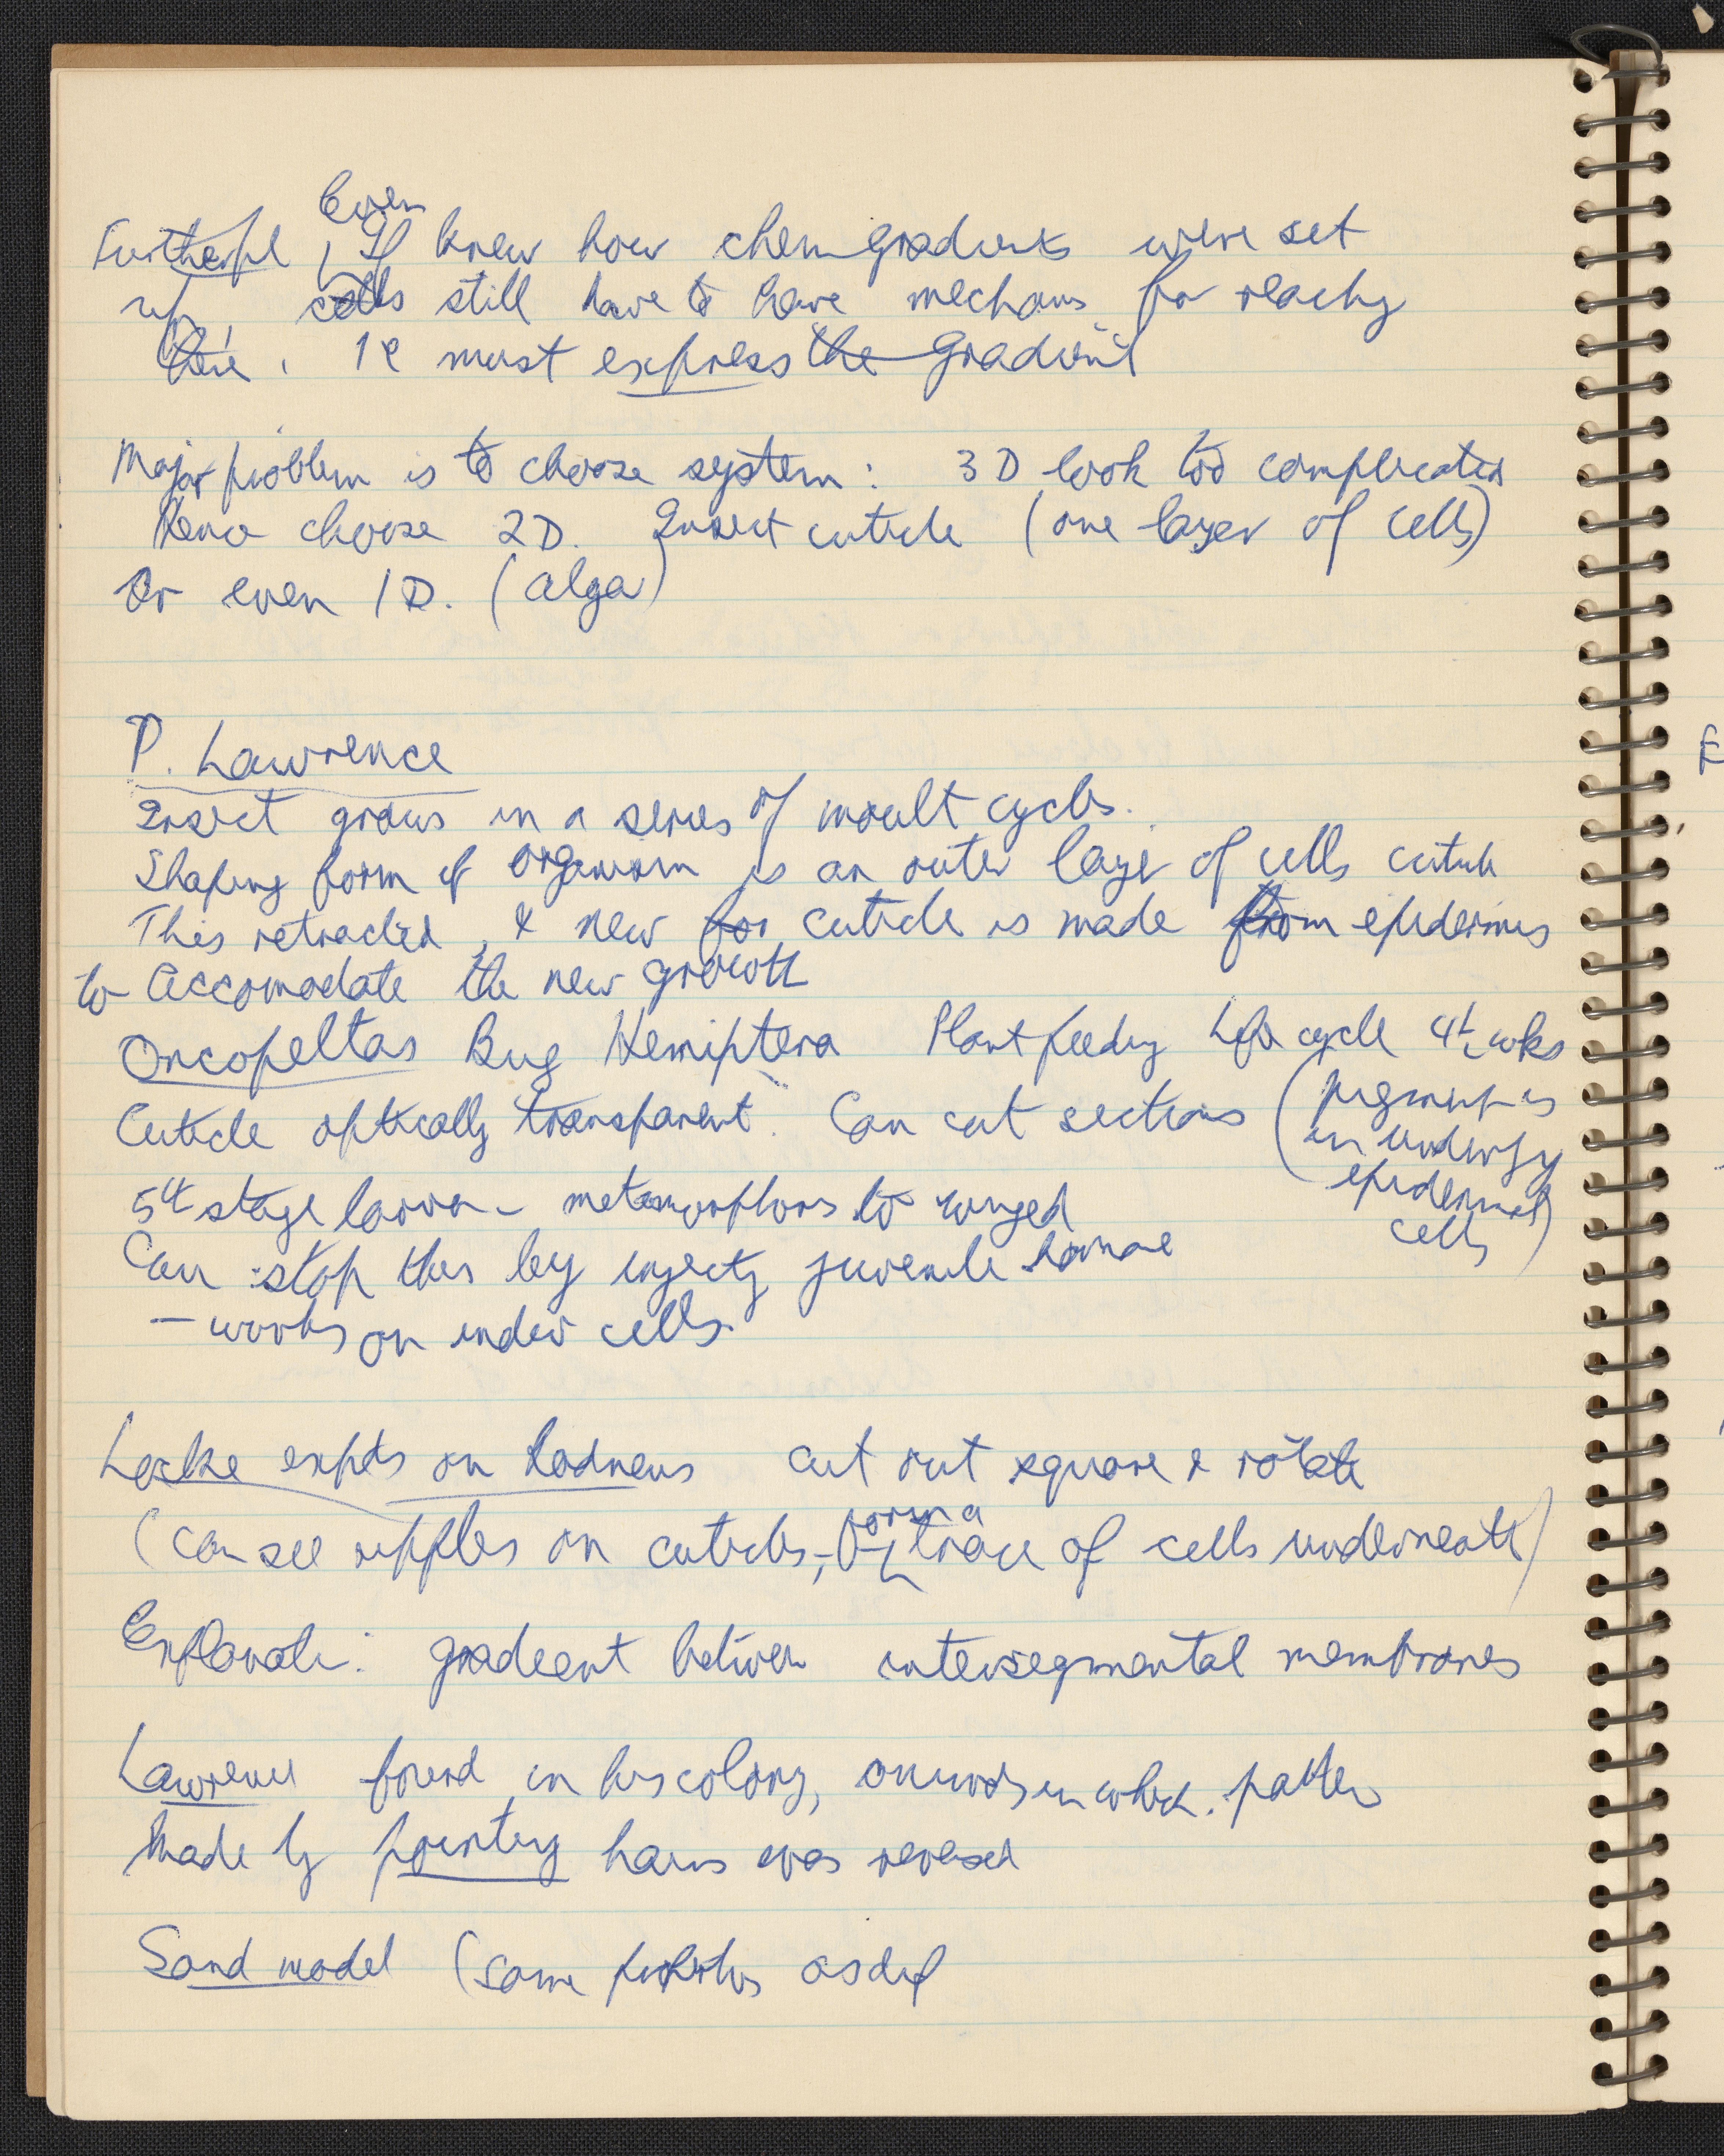 Even
If knew how chem gradients were set
up, cells still have to have mechanis for
. ie must express the gradient
Major problem is to choose system : 3D look too complicated
Hence choose 2D. Insect cuticle (one layer of cells)
Or even 1D. (alga)
P. Lawrence
Insect grows in a series of moult cycles.
Shaping form of organism is an outer layer of cells cuticle
This retracted, & new for cuticle is made from epidermis
to accomodate the new growth
Oncopeltas Bug Hemiptera Plant feeding Life cycle 4½ wks
Cuticle optically transparent. Can cut sections (pigment is
in underlying
epidermal
cells)
5th stage larva - metamorphoses to winged
Can stop this by injecting juvenile hormone
– works on under cells.
Locke expts on Rodneus cut out square & rotate
(can see ripples on cuticles, - form a
trace of cells underneath)
Explanati : gradient between intersegmental membranes
Lawrence found in his colony, animals in which pattern
Made by pointing hairs was reversed
Sand model (same as